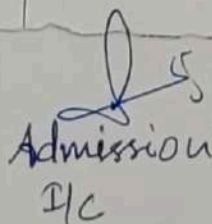 Admission
I/C